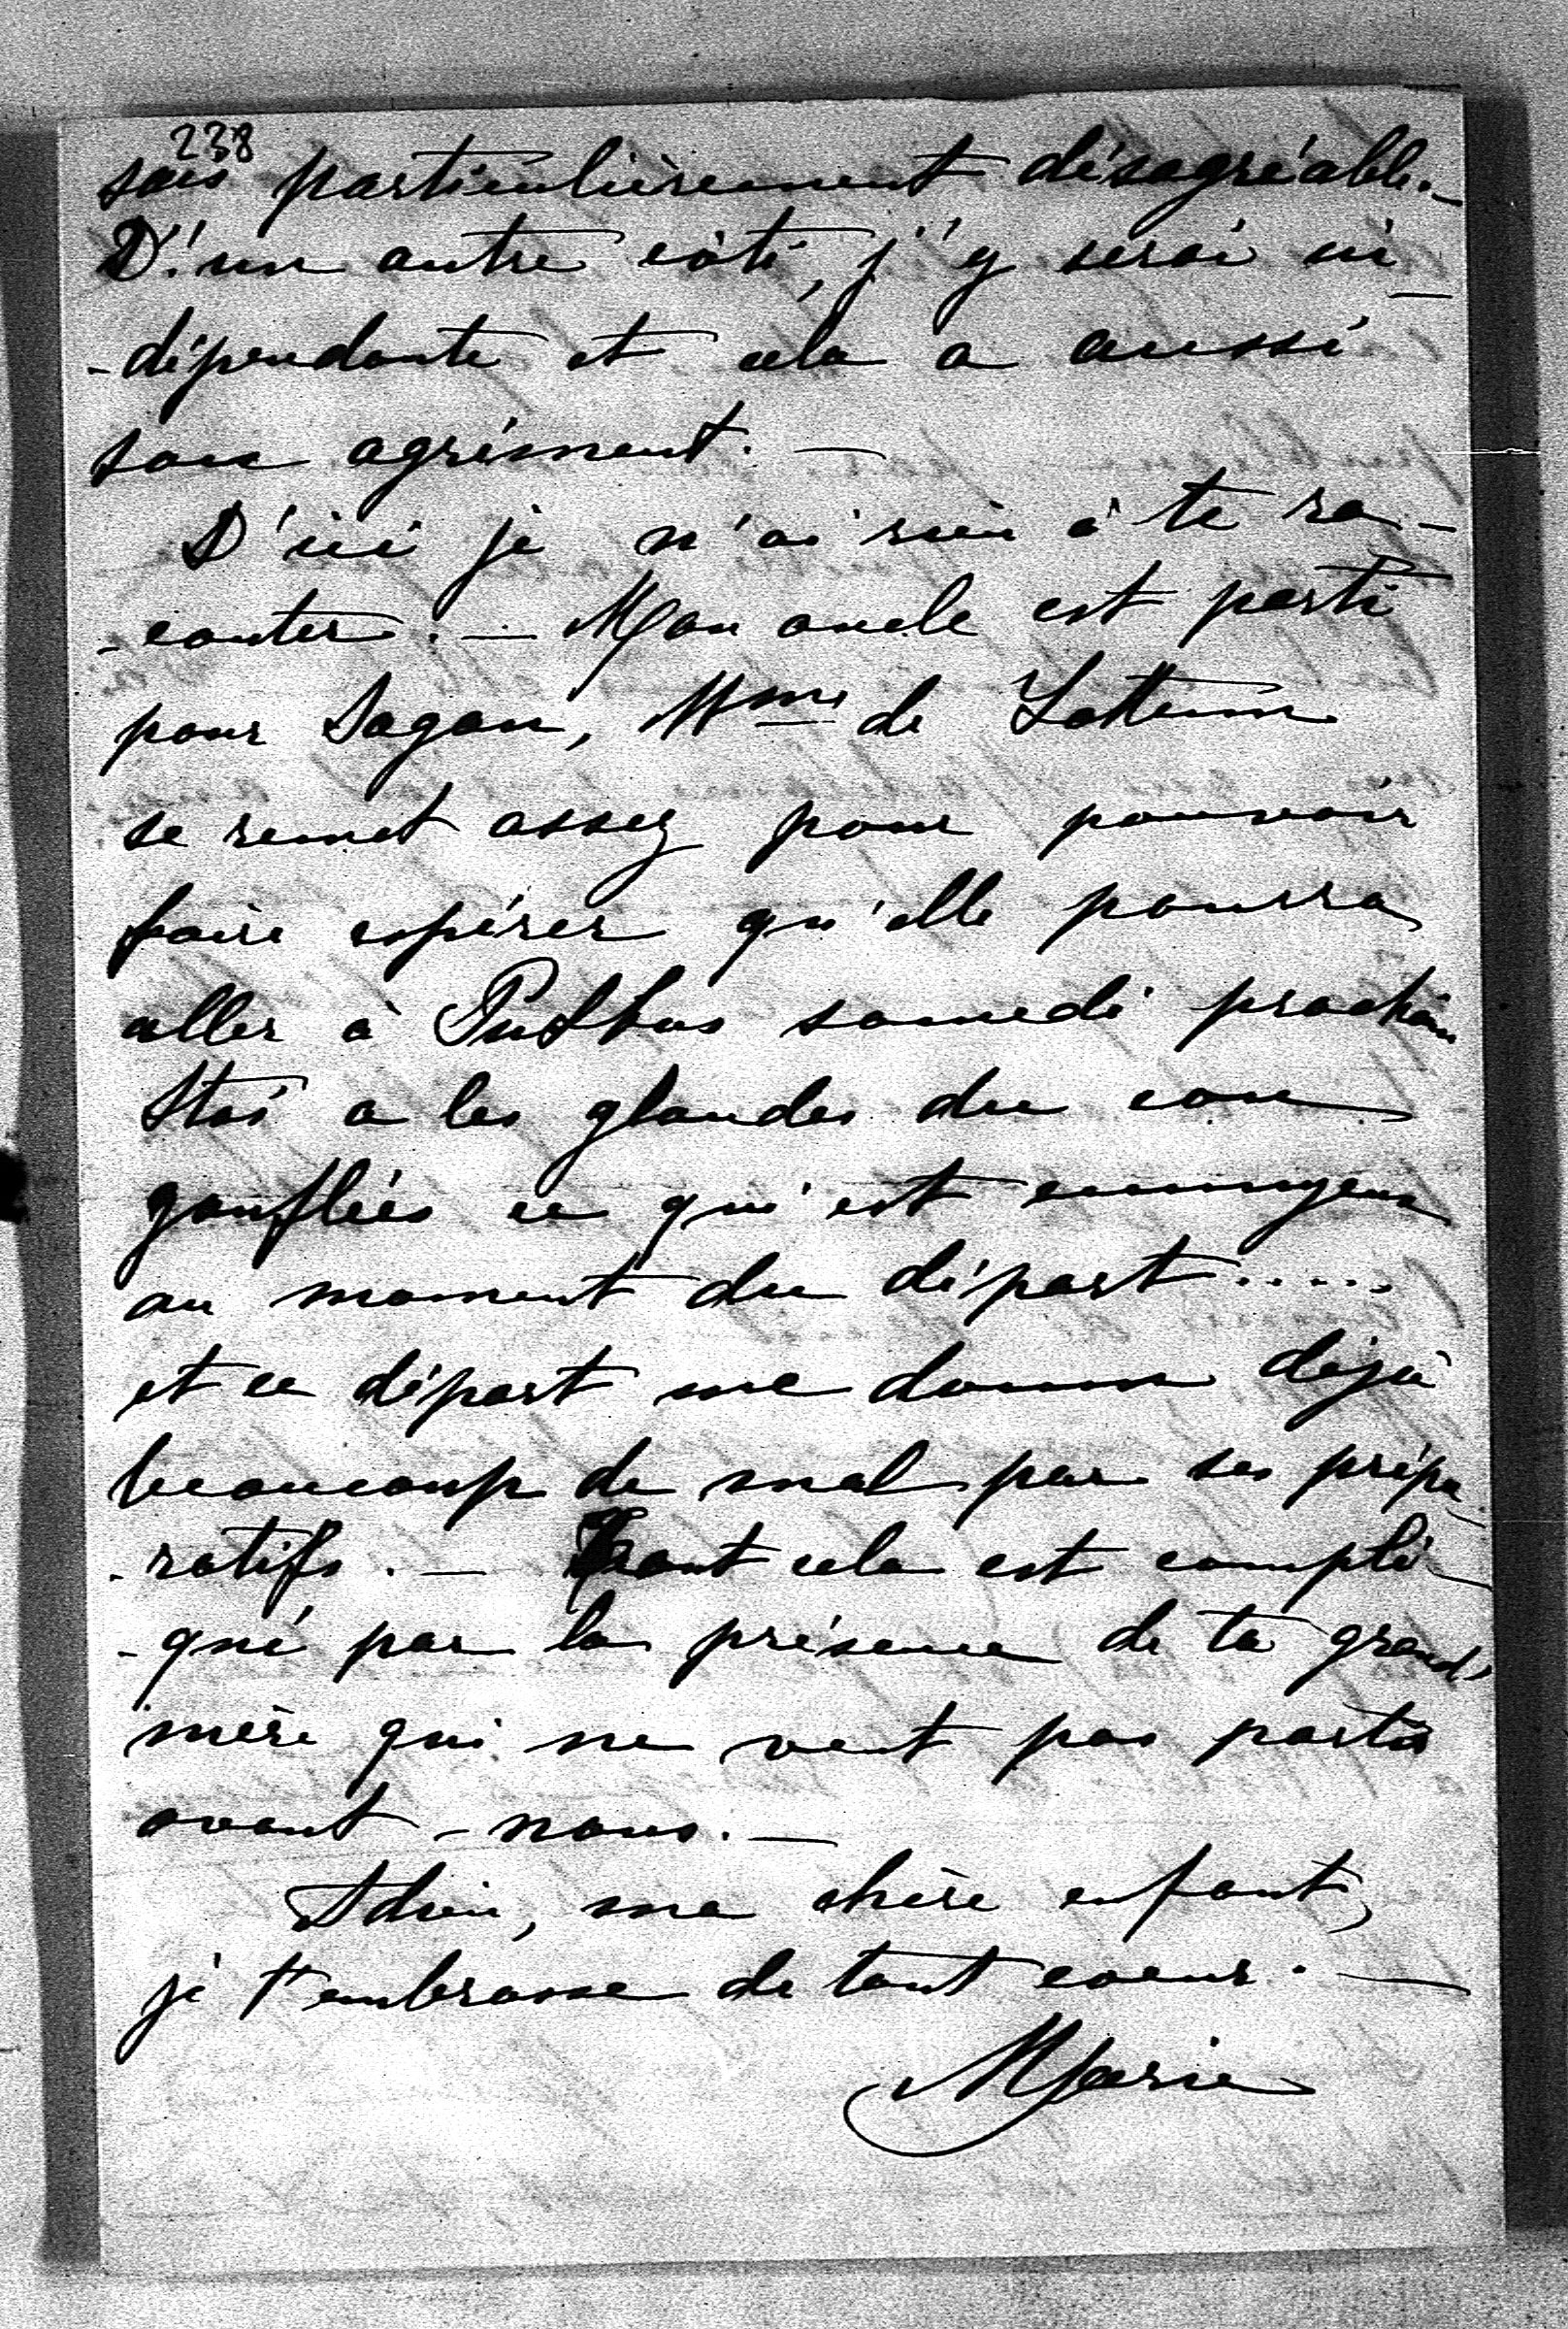 238
sais particulièrement désagréable. _
D'un autre côté, j'y serai in_
-dépendante et cela a aussi
son agrément. —
D'ici je n'ai rien à te ra-
-conter. — Mon oncle est parti
pour Sagan, Mme de Lottum
se remet assez pour pouvoir
faire espérer qu'elle pourra
aller à Putbus samedi prochain
Stas a les glandes du cou
gonflées ce qui est ennuyeux
au moment du départ.....
et ce départ me donne déjà
beaucoup de mal par ses prépa_
-ratifs. — Tout cela est compli_
-qué par la présence de ta grand'
mère qui ne veut pas partir
avant-nous. —
Adieu, ma chère enfant,
je t'embrasse de tout coeur. —
Marie